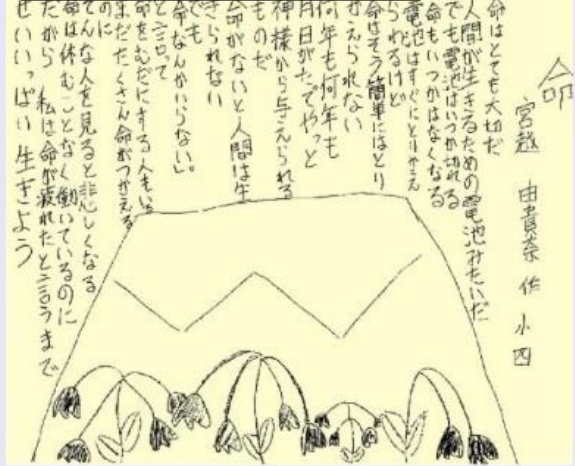 命
宮越 由貴奈 作 小四
命はとても大切だ
人間が生きるための電池みたいだ
でも電池はいつか切れる
命もいつかはなくなる
電池はすぐにとりかえ
られるけど
命はそう簡単にはとり
かえられない
何年も何年も
月日がたってやっと
神様から与えられる
ものだ
命がないと人間は生
きられない
でも
命なんかいらない」。
と言って
命をむだにする人もいる
まだたくさん命がつかえる
のに
そんな人を見ると悲しくなる
命は休むことなく働いているのに
だから 私は命が疲れたと言うまで
せいいっぱい生きよう